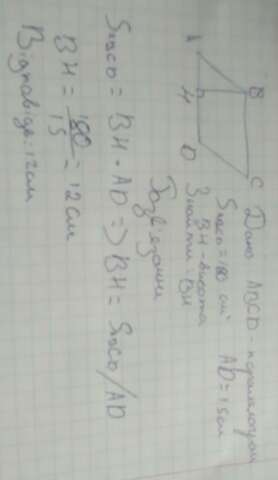 A B
H
D C
Дано ABCD - паралелограм
SABCD = 180 см² AD = 15 см
BH - висота
Знайти: BH
Розв'язання
SABCD = BH · AD => BH = SABCD/AD
BH = 180/15 = 12 см
Відповідь: 12 см